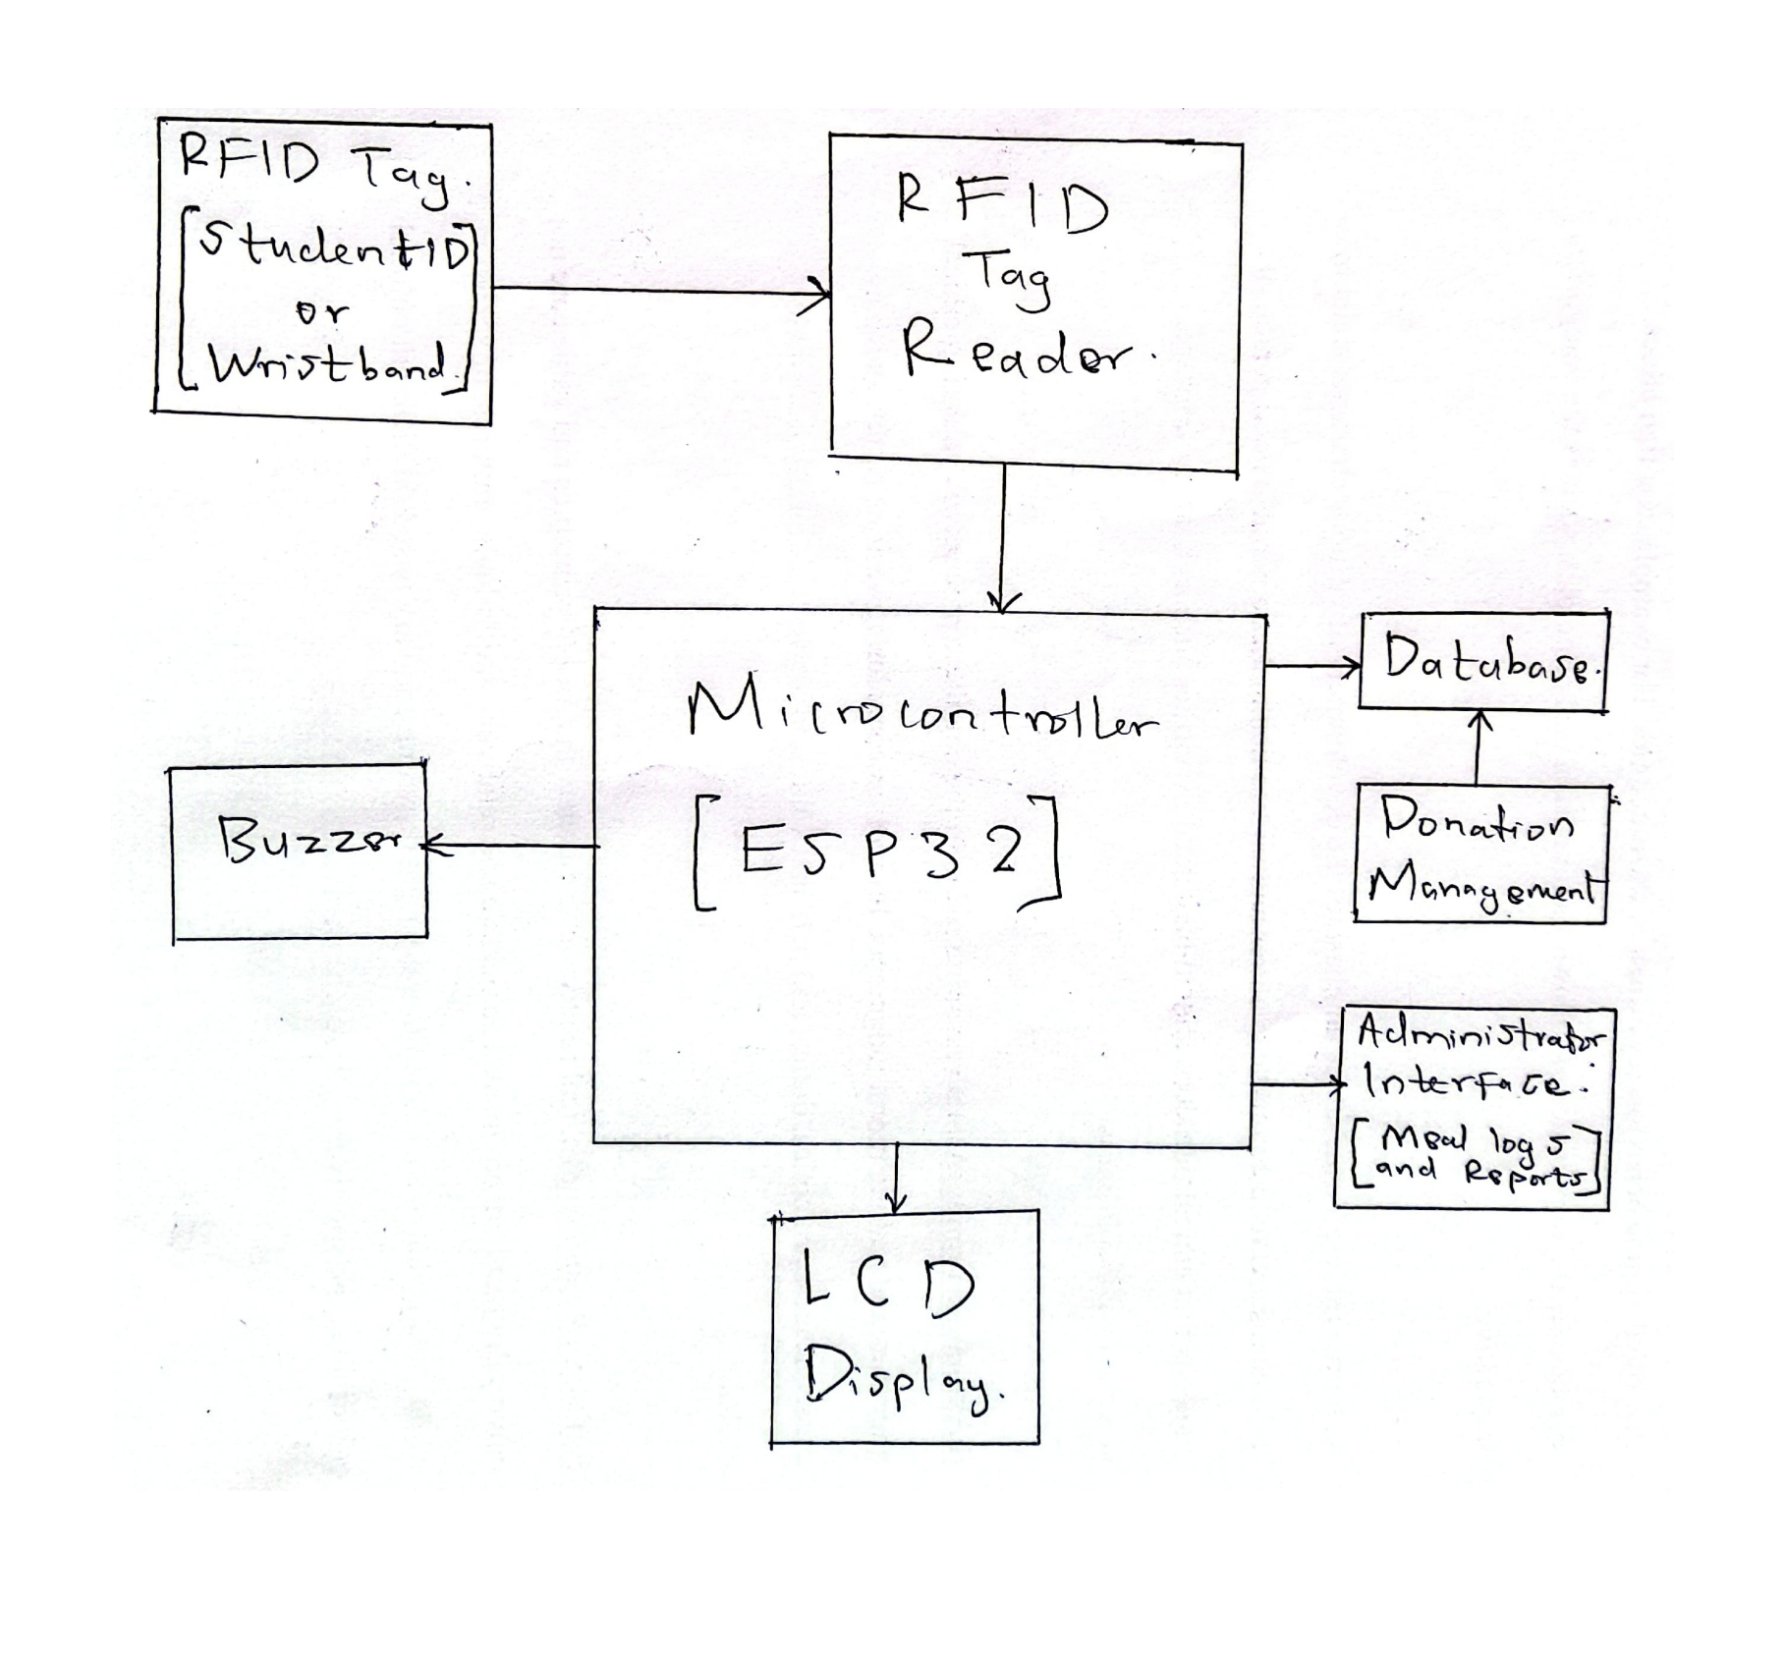 RFID Tag.
[StudentID
or
Wristband.]
RFID
Tag
Reader.
Microcontroller
[ESP32]
Database.
Donation
Management
Buzzer
Administrator
Interface.
[Meal logs
and Reports]
LCD
Display.